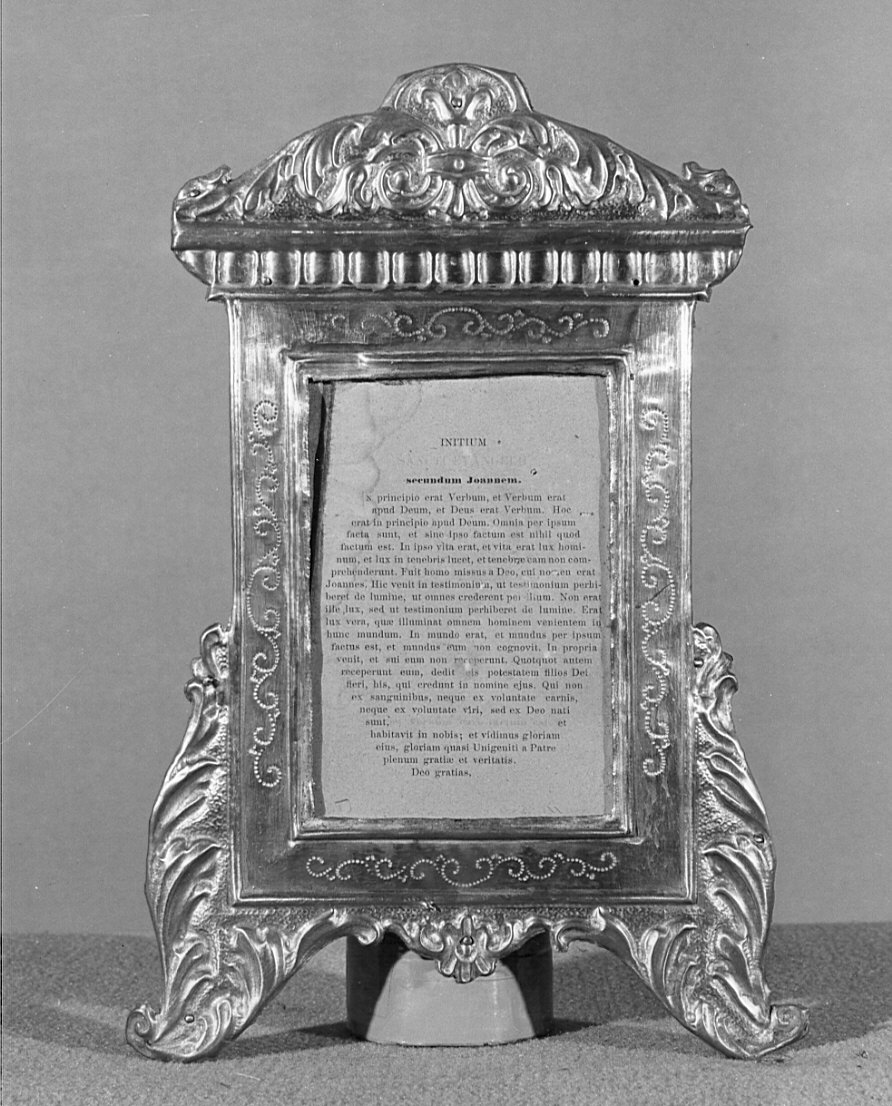 INITIUM
secundum Joannem.
N principio erat Verbum, et Verbum erat
apud Deum, et Deus erat Verbum. Hoc
erat in principio apud Deum. Omnia per ipsum
facta sunt, et sine ipso factum est nihil quod
factum est. In ipso vita erat, et vita erat lux homi-
num, et lux in tenebris lucet, et tenebræ eam non com-
prehenderunt. Fuit homo missus a Deo, cui nomen erat
Joannes. Hic venit in testimonium, ut testimonium perhi-
beret de lumine, ut omnes crederent per illum. Non erat
ille lux, sed ut testimonium perhiberet de lumine. Erat
lux vera, quæ illuminat omnem hominem venientem in
hunc mundum. In mundo erat, et mundus per ipsum
factus est, et mundus eum non cognovit. In propria
venit, et sui eum non receperunt. Quotquot autem
receperunt eum, dedit eis potestatem filios Dei
fieri, his, qui credunt in nomine ejus. Qui non
ex sanguinibus, neque ex voluntate carnis,
neque ex voluntate viri, sed ex Deo nati
sunt. et
habitavit in nobis; et vidimus gloriam
eius, gloriam quasi Unigeniti a Patre
plenum gratiæ et veritatis.
Deo gratias,